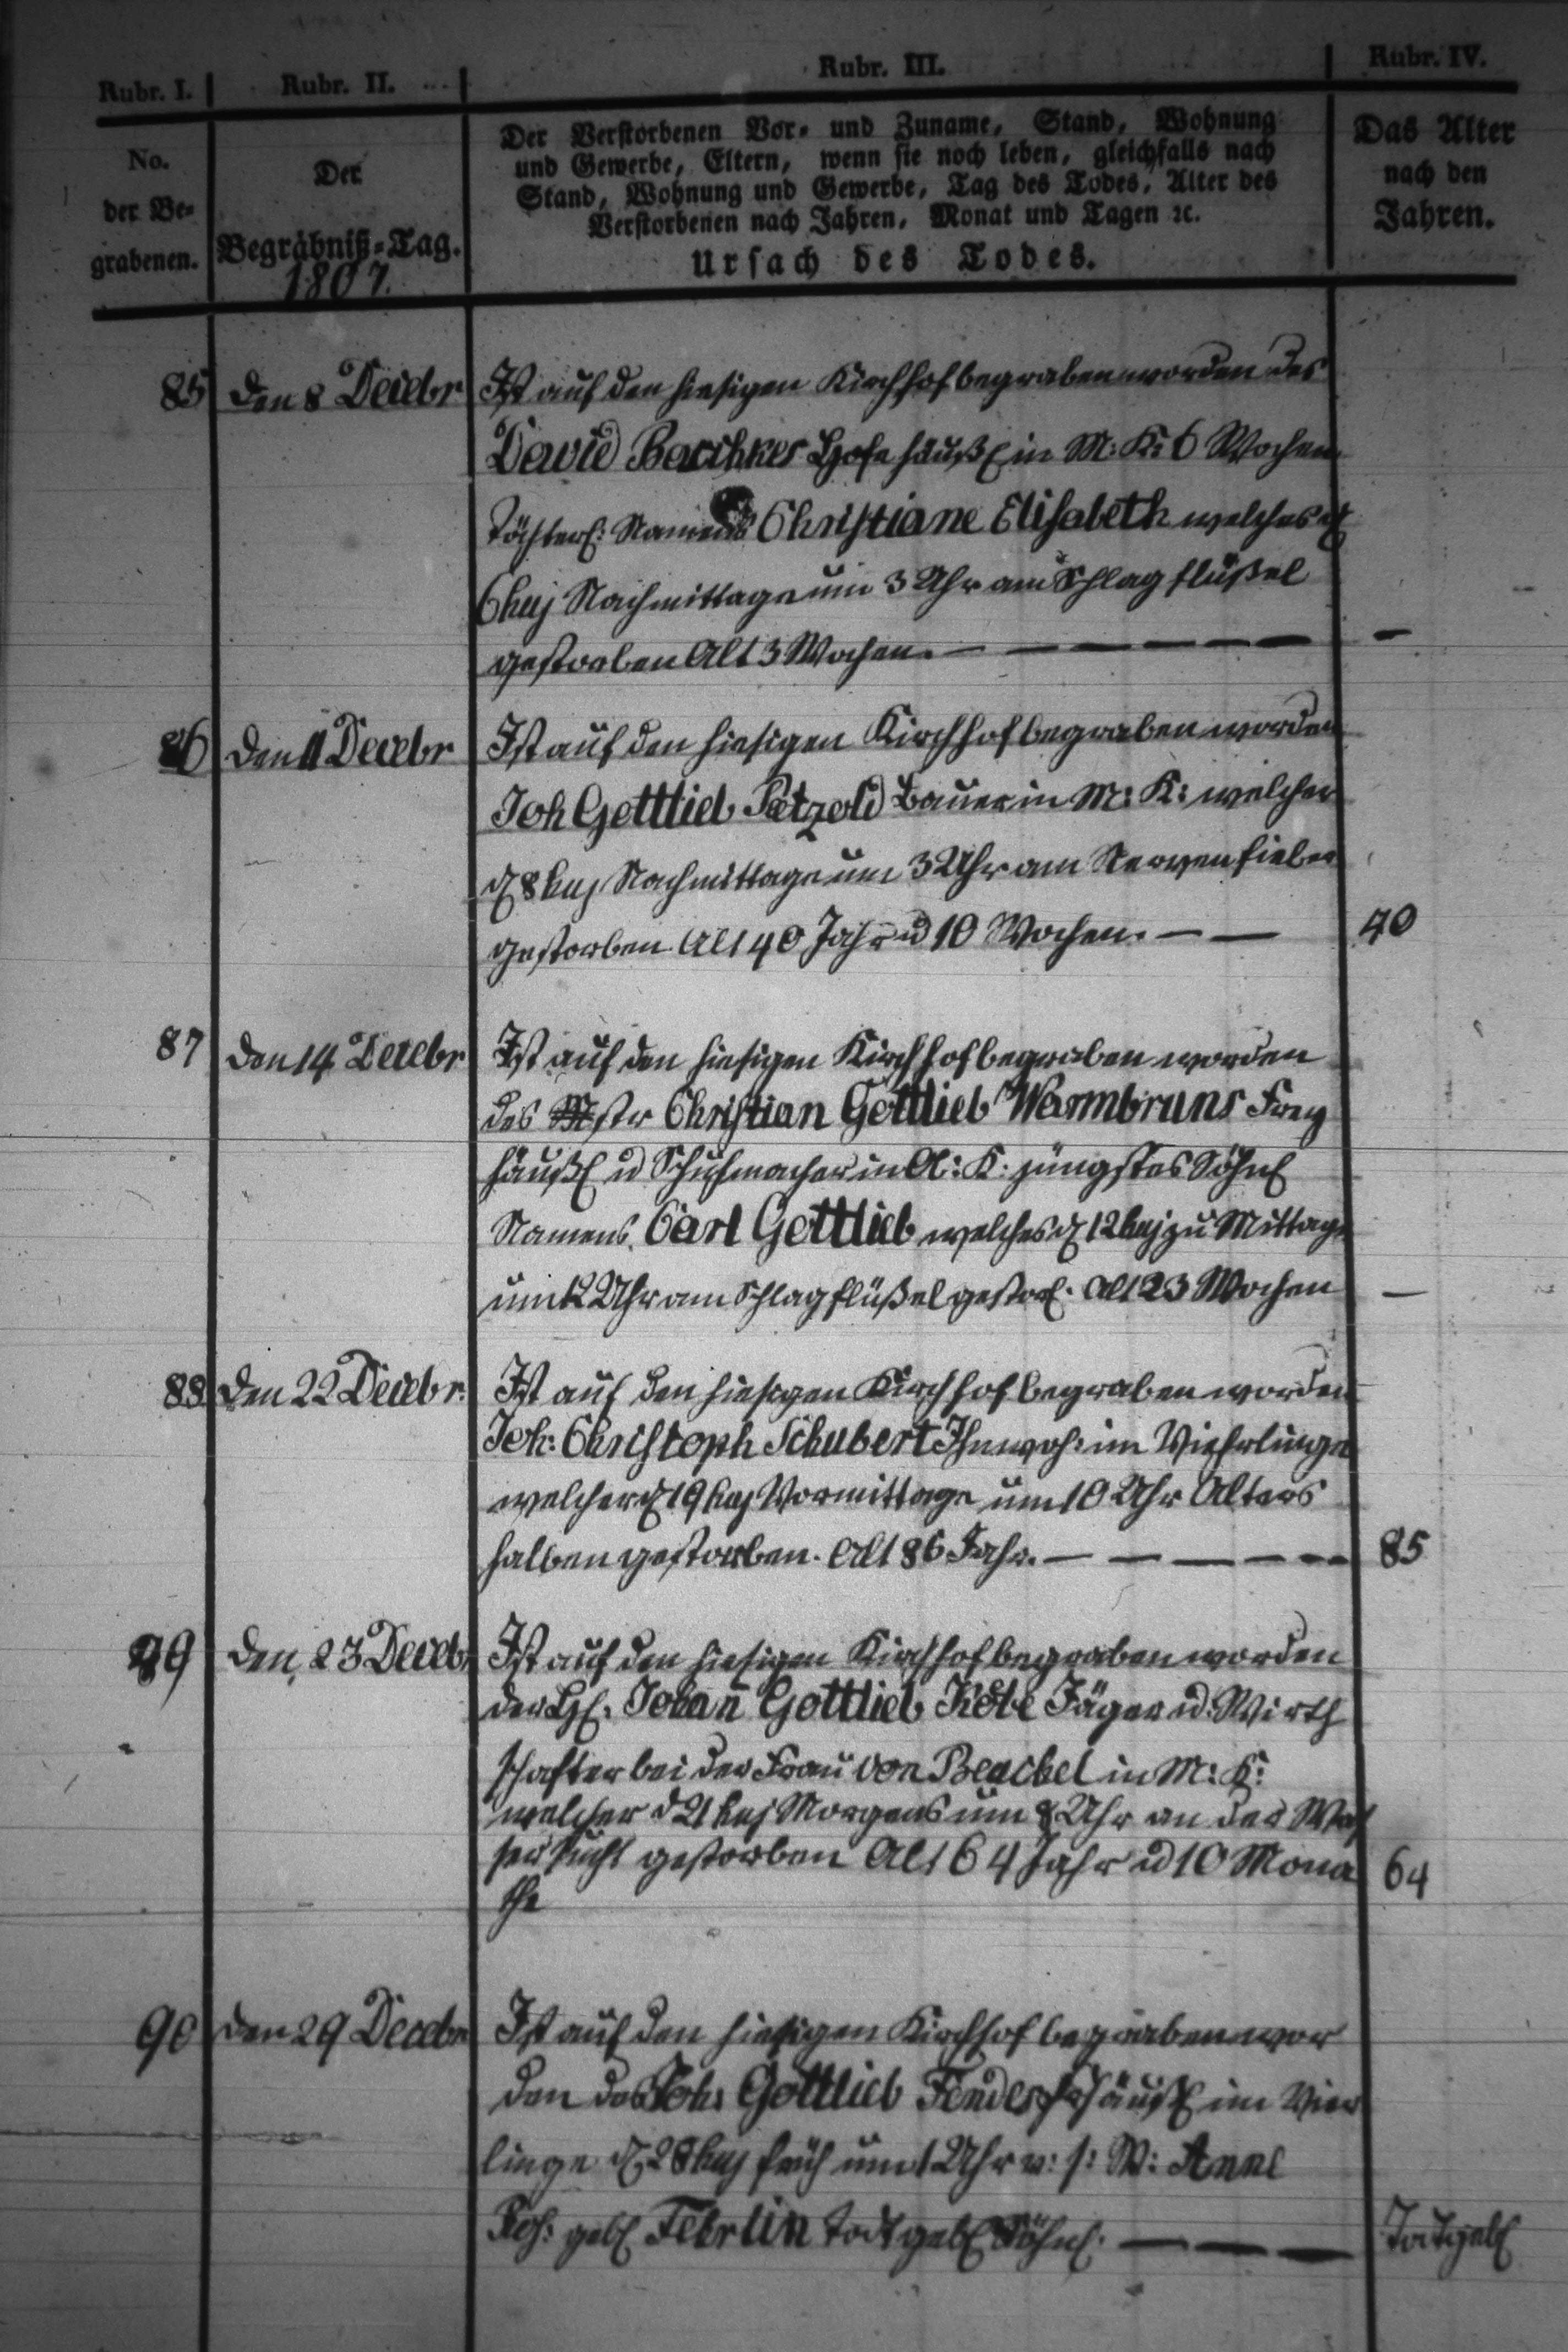 Rubr. I. Rubr. II. Rubr. III. Rubr. IV.
No. der Be= grabenen.
Der Begräbniß=Tag. 1807.
Der Verstorbenen Vor= und Zuname, Stand, Wohnung
und Gewerbe, Eltern, wenn sie noch leben, gleichfalls nach
Stand, Wohnung und Gewerbe, Tag des Todes, Alter des
Verstorbenen nach Jahren, Monat und Tagen ꝛc.
Ursach des Todes.
Das Alter
nach den
Jahren.
85 den 8 Decebr Ist auf den hiesigen Kirchhof begraben worden des
David Hofe häußl in M: K: 6 Wochen
Töchterl: Namens Christiane Elisabeth welches d
6 huj Nachmittage um 3 Uhr am Schlagflüßel
gestorben Alt 3 Wochen. — — — — — —
86 den 11 Decebr Ist auf den hiesigen Kirchhof begraben worden
Joh Gottlieb Petzold Bauer in M: K: welcher
d 8 huj Nachmittage um 3 Uhr am Nervenfieber
gestorben Alt 40 Jahr u 10 Wochen. — — 40
87 den 14 Decebr Ist auf den hiesigen Kirchhof begraben worden
des Mstr Christian Gottlieb Warmbruns Frey
häußl u Schuhmacher in A: K: jüngstes Söhnl
Namens Carl Gottlieb welches d 12 huj zu Mittage
um 12 Uhr am Schlagflüßel gestorb. Alt 23 Wochen —
88 den 22 Decebr. Ist auf den hiesigen Kirchhof begraben worden
Joh: Christoph Schubert Inwoh: im Viehrlinge
welcher d 19 huj Vormittage um 10 Uhr Alters
halben gestorben. Alt 86 Jahr. — — — — — 85
89 den 23 Decebr Ist auf den hiesigen Kirchhof begraben worden
der H. Johan̄ Gottlieb Köbe Jäger u. Wirth
schafter bei der Frau von in M: K:
welcher d 21 huj Morgens um 8 Uhr an der Was
sersucht gestorben Alt 64 Jahr u 10 Mona 64
the
90 den 29 Decebr Ist auf den hiesigen Kirchhof begraben wor
den des Joh: Gottlieb häußl im Vier
linge d 28 huj früh um 1 Uhr v: s: W: Anne
Ros: gebl todtgebl Söhnl. — — — Todtgebl